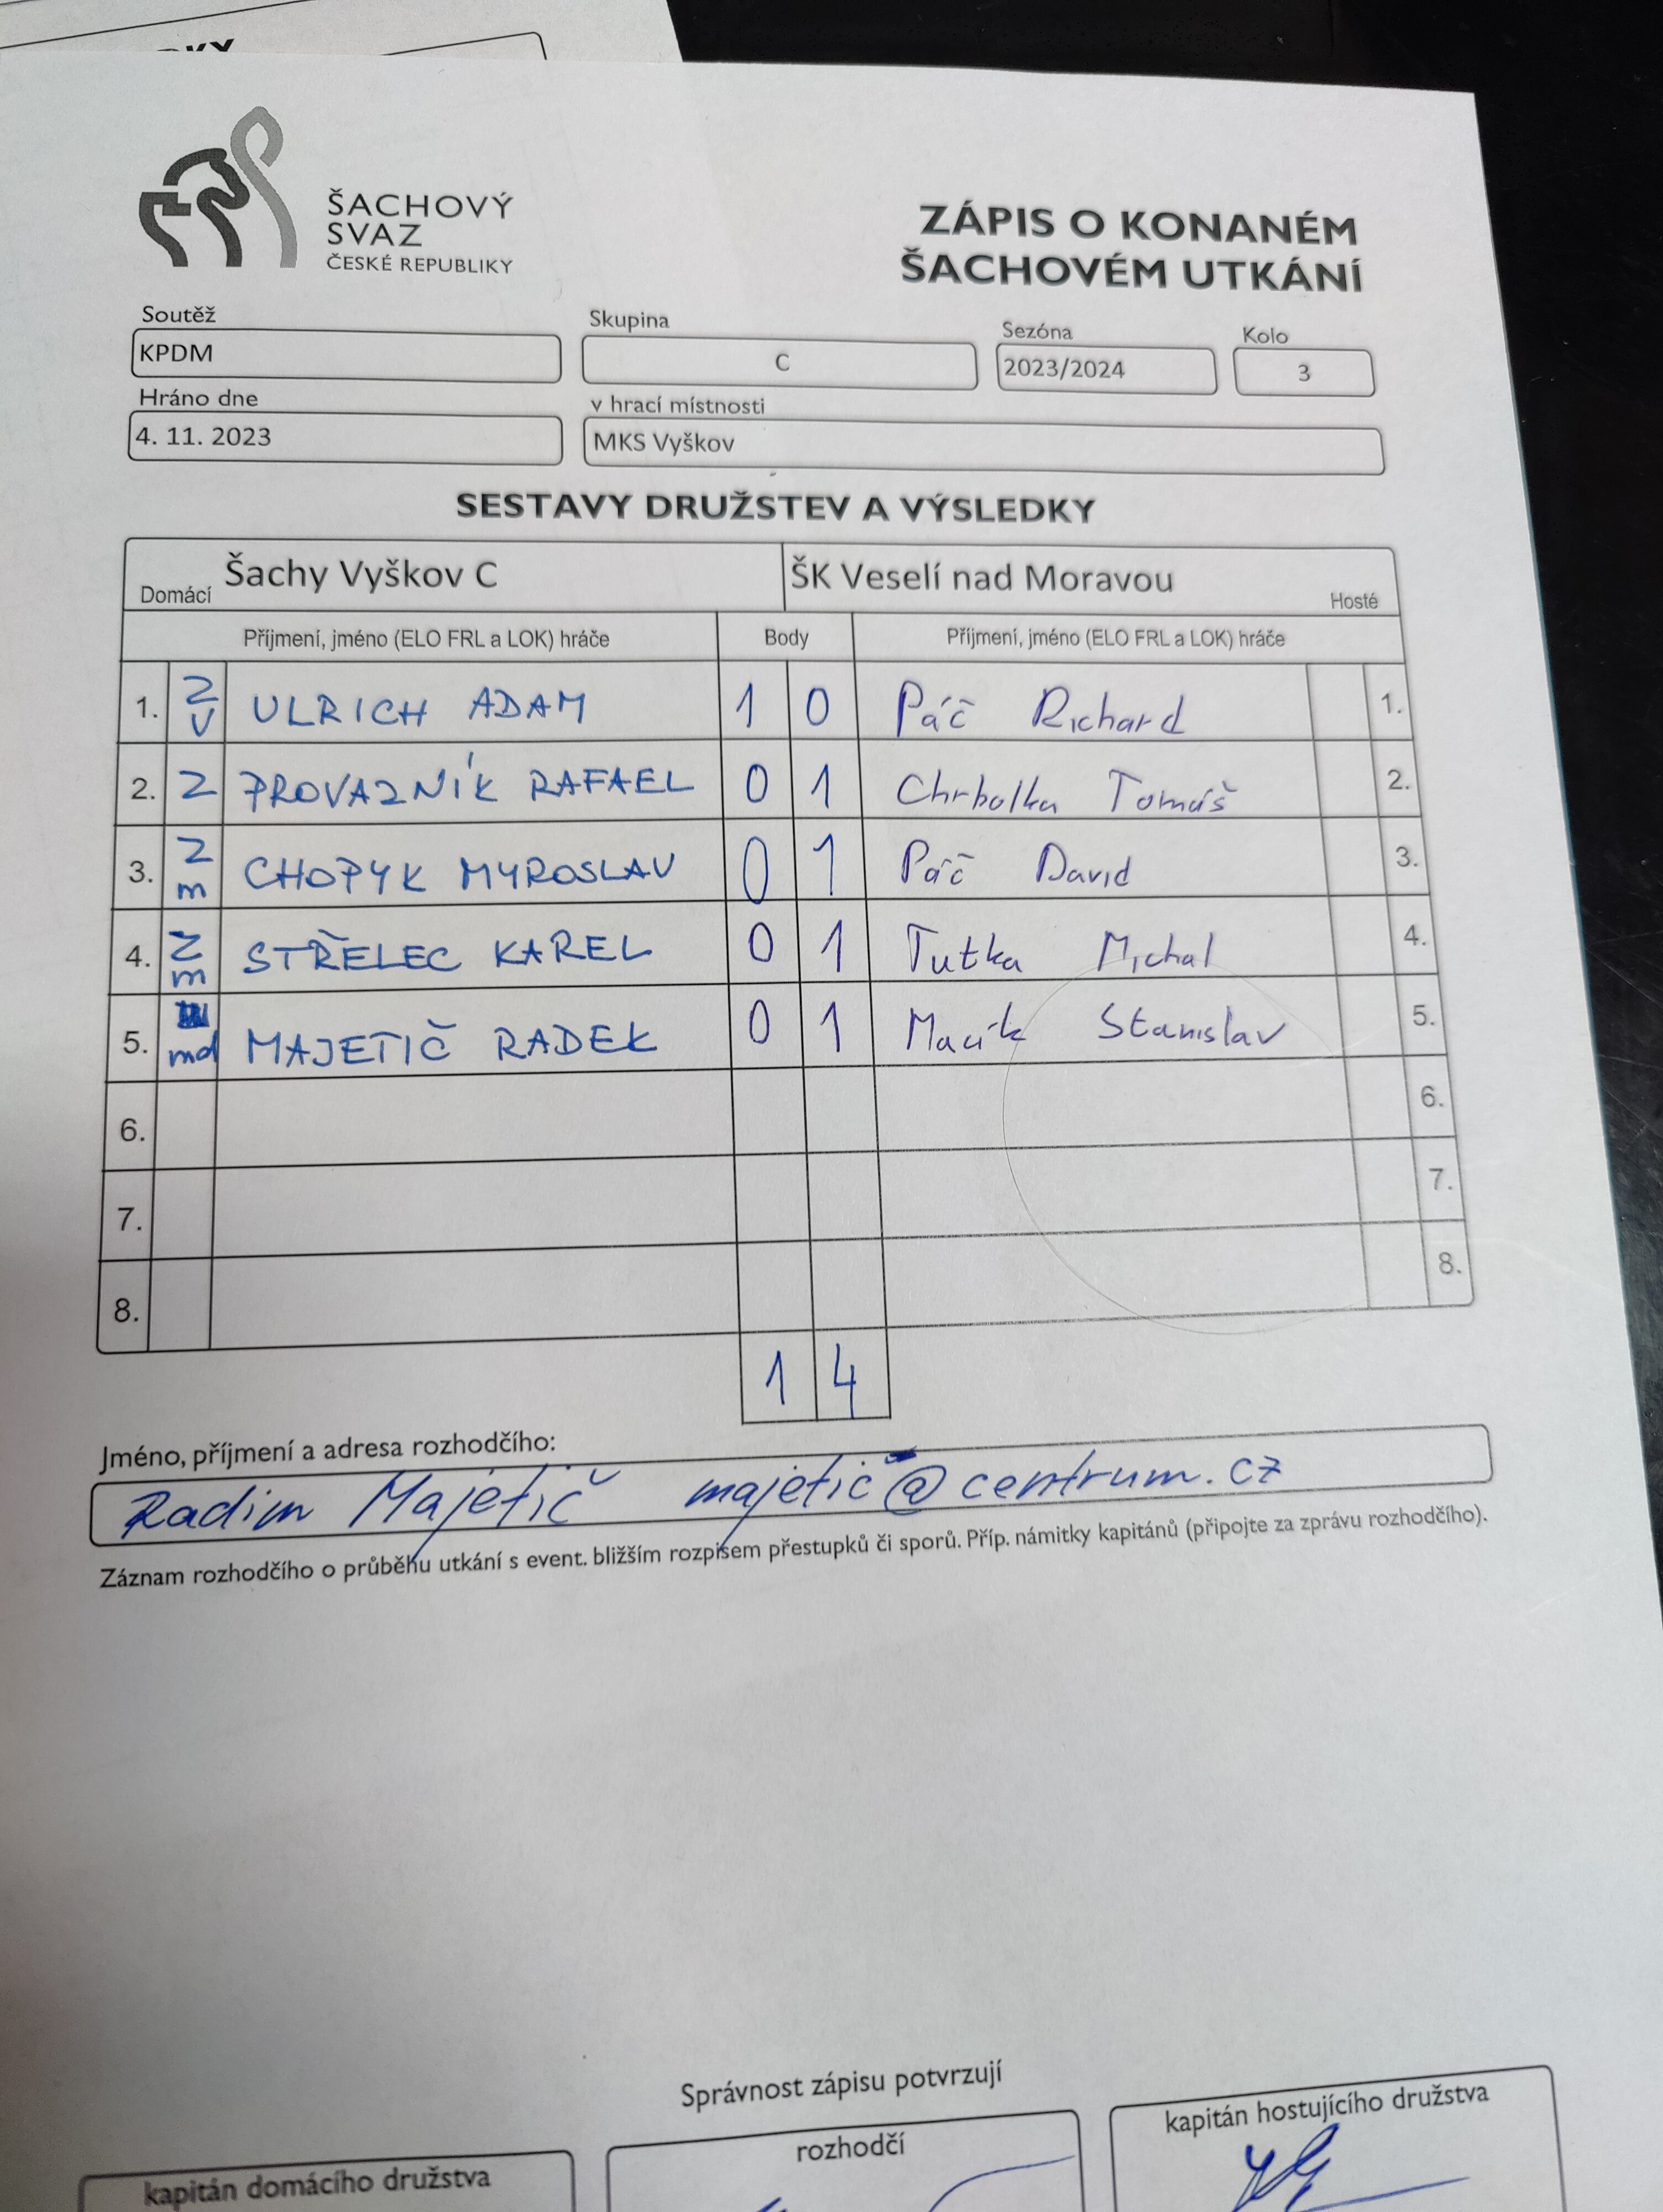 ŠACHOVÝ
SVAZ
ČESKÉ REPUBLIKY
ZÁPIS O KONANÉM
ŠACHOVÉM UTKÁNÍ
Soutěž Skupina Sezóna Kolo
KPDM C 2023/2024 3
Hráno dne v hrací místnosti
4. 11. 2023 MKS Vyškov
SESTAVY DRUŽSTEV A VÝSLEDKY
Domácí Šachy Vyškov C ŠK Veselí nad Moravou Hosté
Příjmení, jméno (ELO FRL a LOK) hráče Body Příjmení, jméno (ELO FRL a LOK) hráče
1. Z V ULRICH ADAM 1 0 Páč Richard 1.
2. Z PROVAZNÍK RAFAEL 0 1 Chrbolka Tomáš 2.
3. Z m CHOPYK MYROSLAV 0 1 Páč David 3.
4. Z m STŘELEC KAREL 0 1 Tutka Michal 4.
5. md MAJETIČ RADEK 0 1 Macík Stanislav 5.
6. 6.
7. 7.
8. 8.
1 4
Jméno, příjmení a adresa rozhodčího:
Radim Majetič majetic@centrum.cz
Záznam rozhodčího o průběhu utkání s event. bližším rozpisem přestupků či sporů. Příp. námitky kapitánů (připojte za zprávu rozhodčího).
Správnost zápisu potvrzují
kapitán domácího družstva rozhodčí kapitán hostujícího družstva